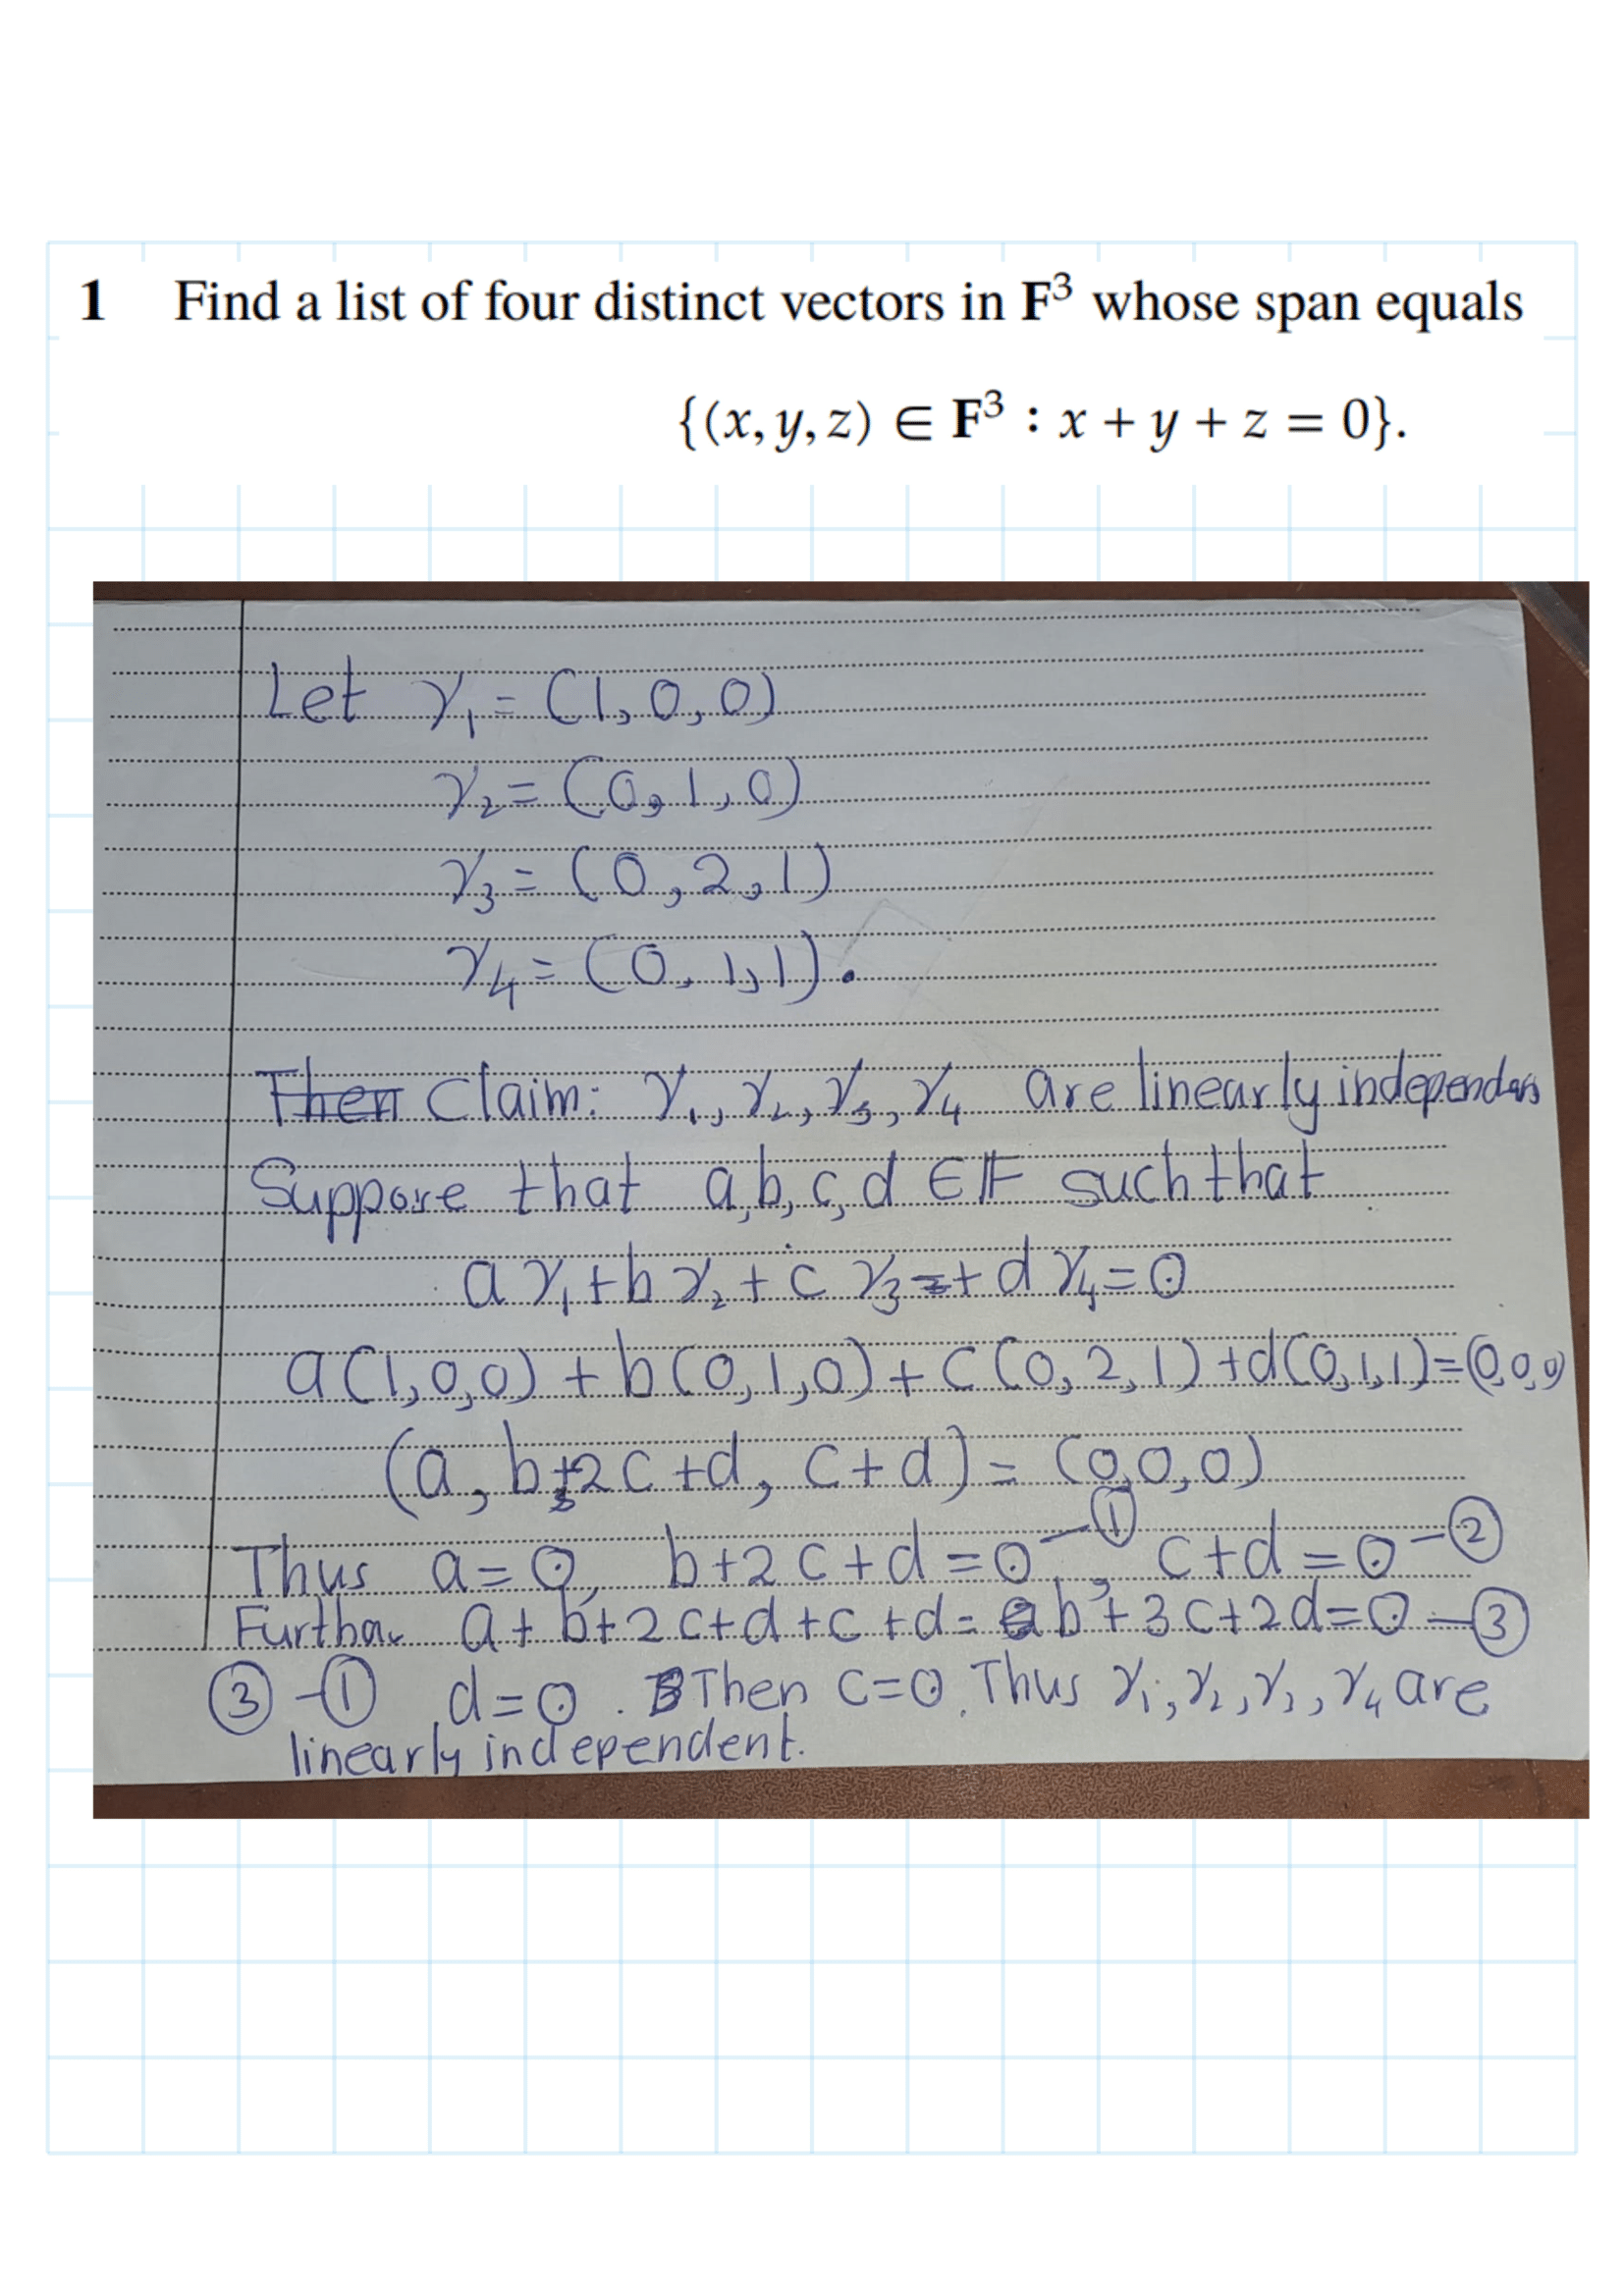 1 Find a list of four distinct vectors in F³ whose span equals
{(x, y, z) ∈ F³ : x + y + z = 0}.
Let γ₁ = (1, 0, 0)
γ₂ = (0, 1, 0)
γ₃ = (0, 2, 1)
γ₄ = (0, 1, 1).
Then Claim: γ₁, γ₂, γ₃, γ₄ are linearly
Suppose that a, b, c, d ∈ F such that
a γ₁ + b γ₂ + c γ₃ + d γ₄ = 0
a(1,0,0) + b(0,1,0) + c(0,2,1) + d(0,1,1) = (0,0,0)
(a, b+2c+d, c+d) = (0,0,0)
Thus a = 0, b+2c+d = 0 —①, c+d = 0 —②
a + b + 2c + d + c + d = b + 3c + 2d = 0 —③
③ - ① d = 0. Then c = 0. Thus γ₁, γ₂, γ₃, γ₄ are
linearly independent.